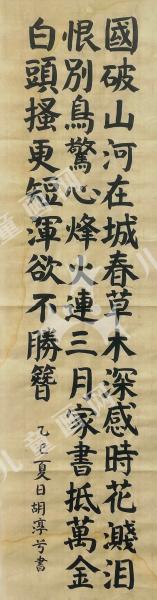 國破山河在城春草木深感時花濺泪
恨別鳥驚心烽火連三月家書抵萬金
白頭搔更短渾欲不勝簪
乙巳夏日胡淳兮書